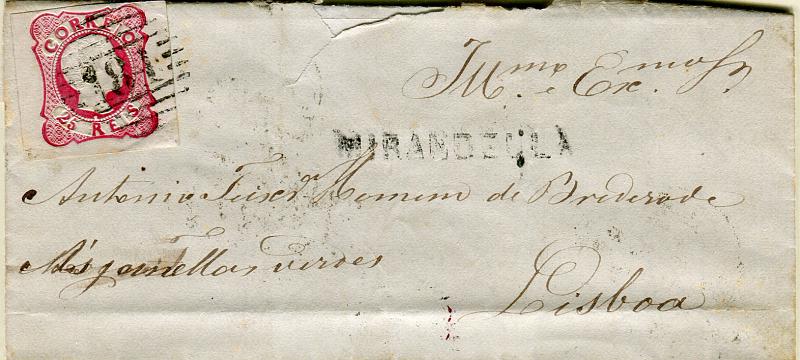 CORREIO
25 REIS
Ill.mo e Ex.mo Sr.
MIRANDELLA
Antonio Teix.ra Homem de Brederode
Ás janellas verdes
Lisboa